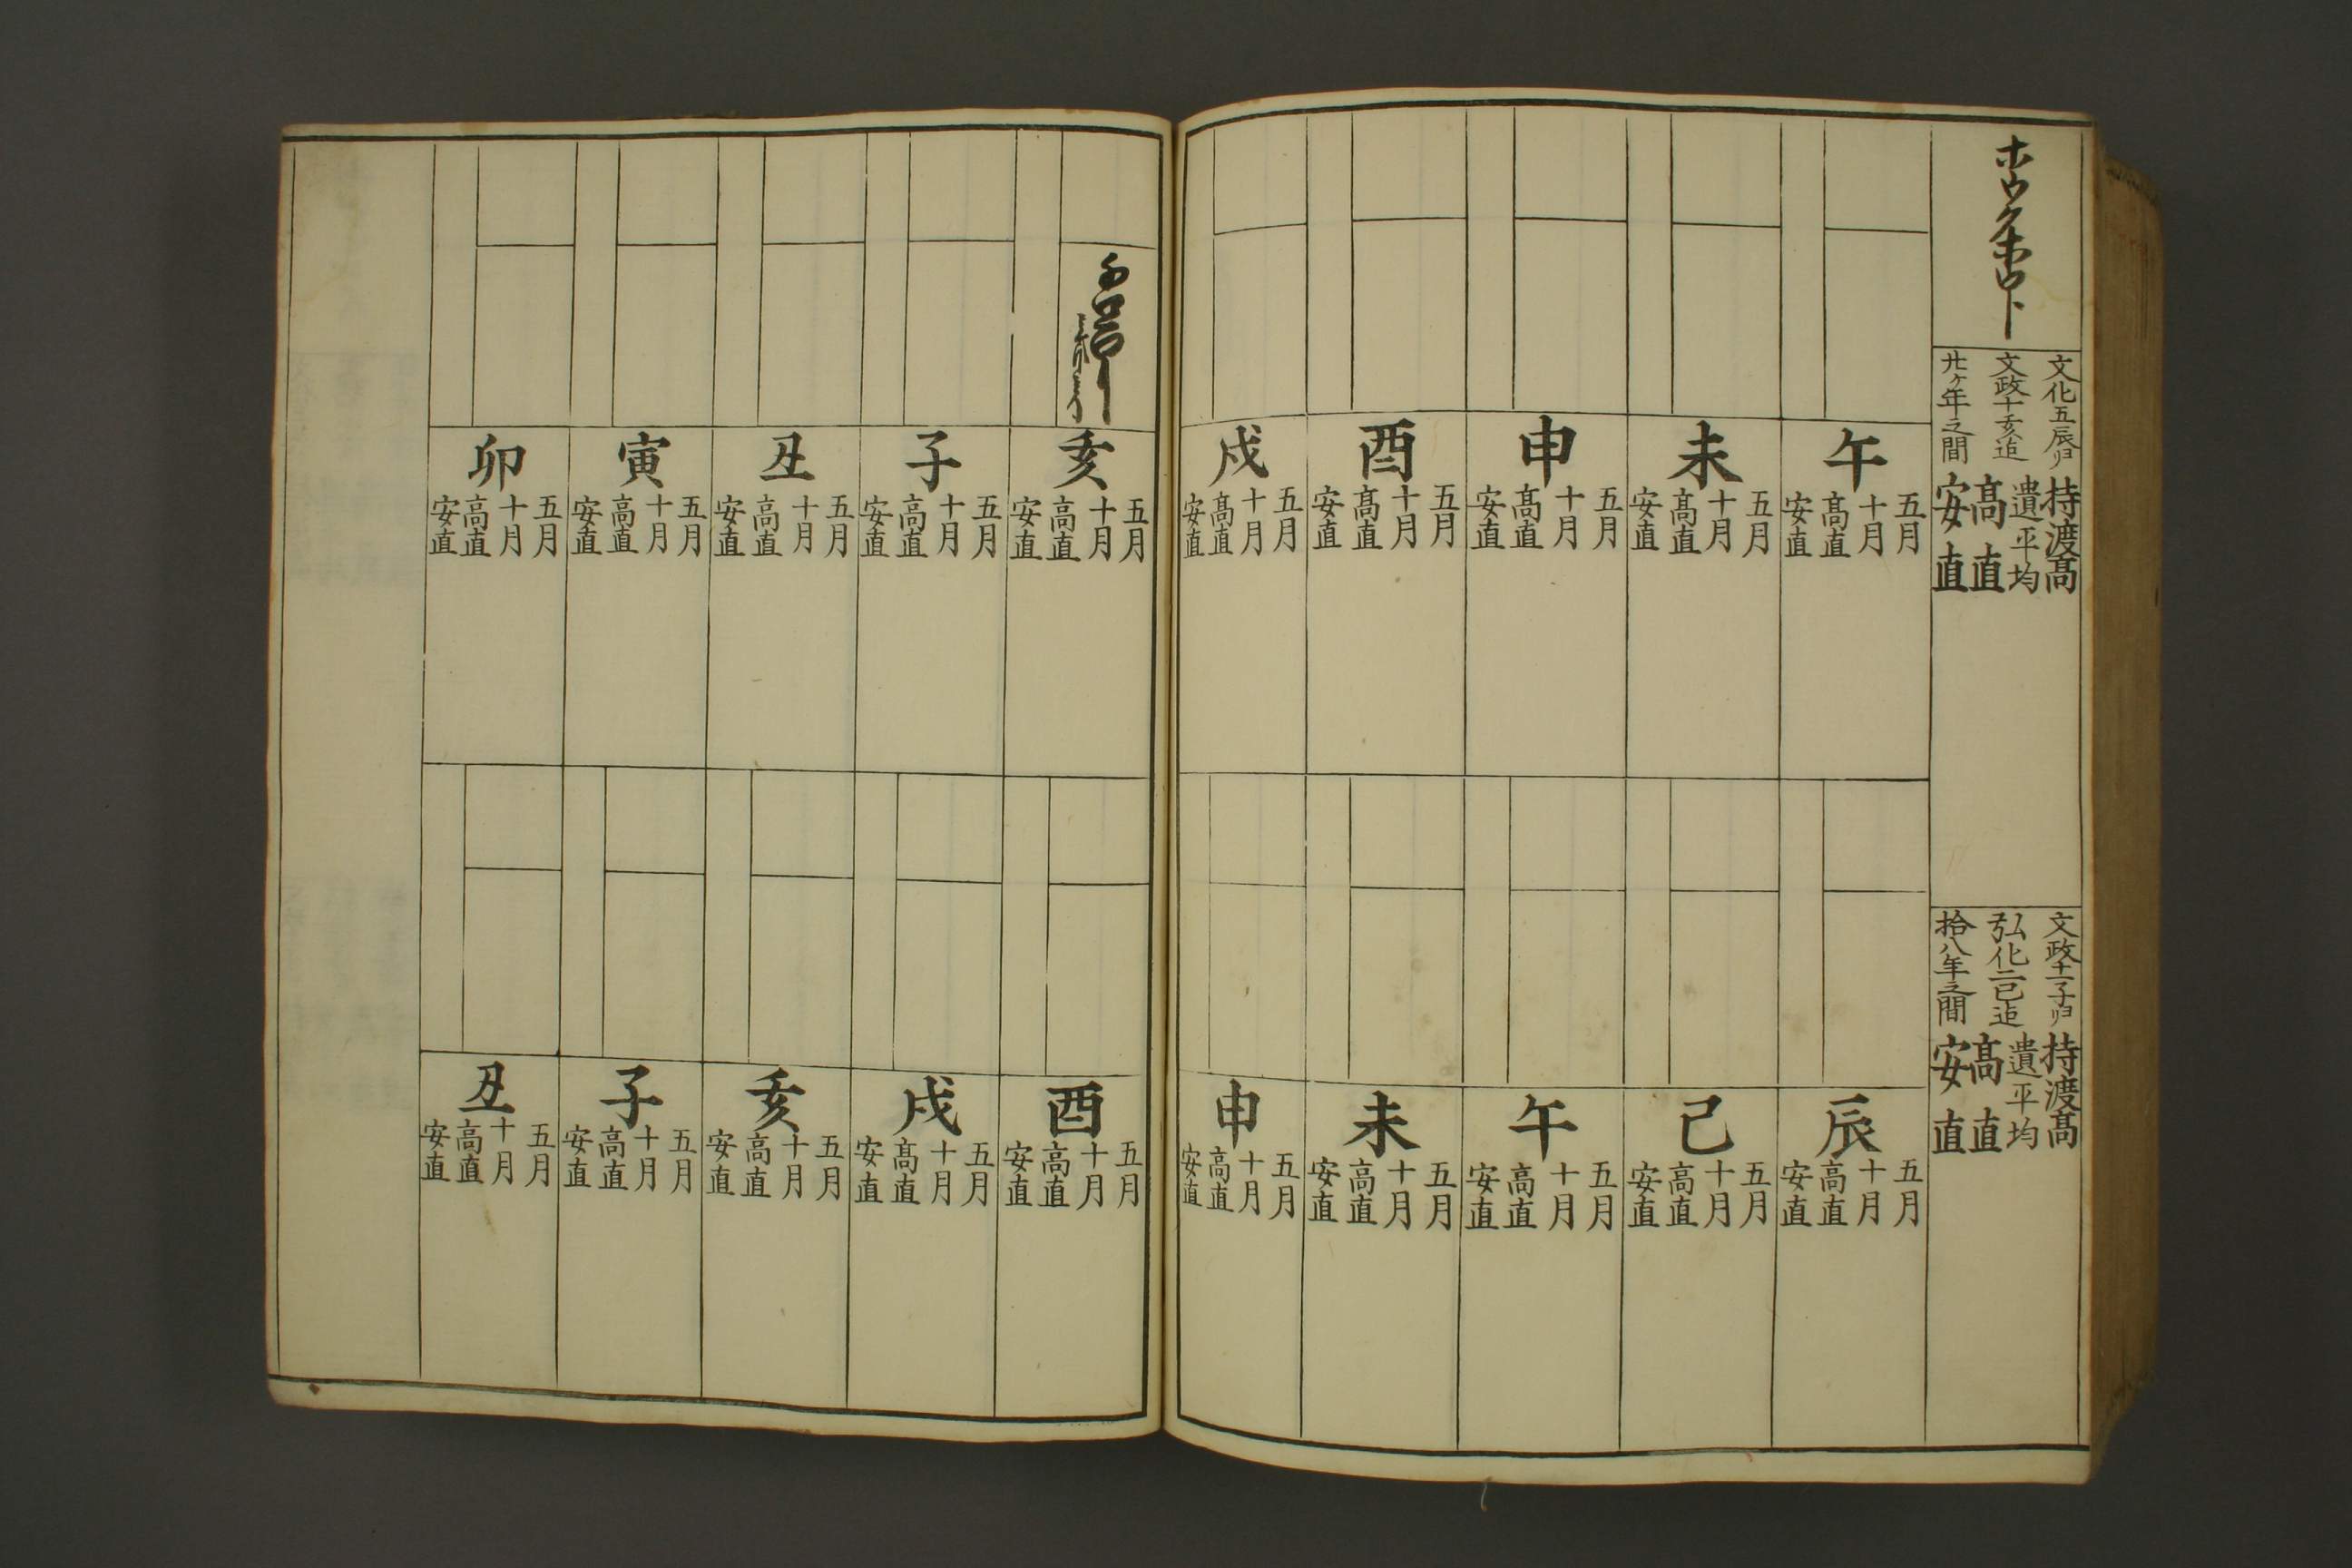 ホウクホウト
文化五辰ゟ
文政十亥迄
廿ヶ年之間
持渡髙
遺平均
髙直
安直
文政十一子ゟ
弘化二巳迄
拾八年之間
持渡髙
遺平均
髙直
安直
午
五月
十月
髙直
安直
未
五月
十月
髙直
安直
申
五月
十月
髙直
安直
酉
五月
十月
髙直
安直
戌
五月
十月
髙直
安直
辰
五月
十月
高直
安直
巳
五月
十月
高直
安直
午
五月
十月
高直
安直
未
五月
十月
高直
安直
申
五月
十月
高直
安直
亥
五月
十月
高直
安直
子
五月
十月
高直
安直
丑
五月
十月
高直
安直
寅
五月
十月
高直
安直
卯
五月
十月
高直
安直
酉
五月
十月
高直
安直
戌
五月
十月
髙直
安直
亥
五月
十月
高直
安直
子
五月
十月
高直
安直
丑
五月
十月
高直
安直